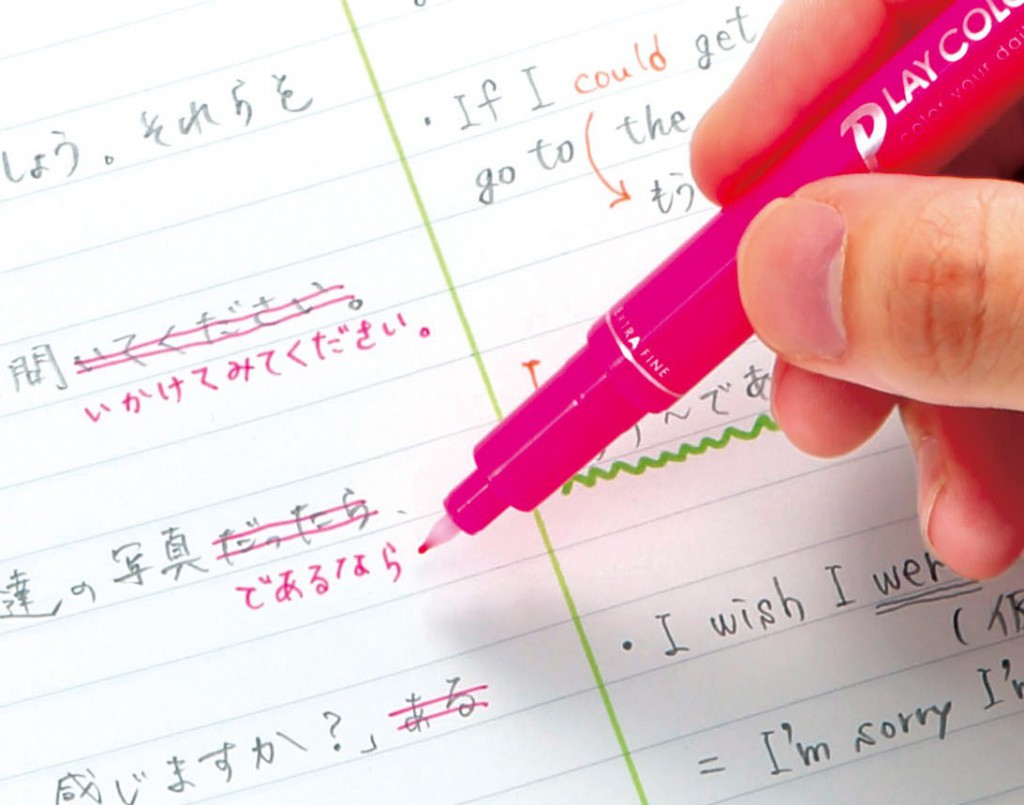 しょう。それらを
聞いてください。
いかけてみてください。
達の写真だったら、
であるなら
感じますか？」ある
・If I could get
go to the
もう
I
んであ
・I wish I wer
(仮
= I'm sorry I'm
PLAY COLO
color your dai
EXTRA FINE